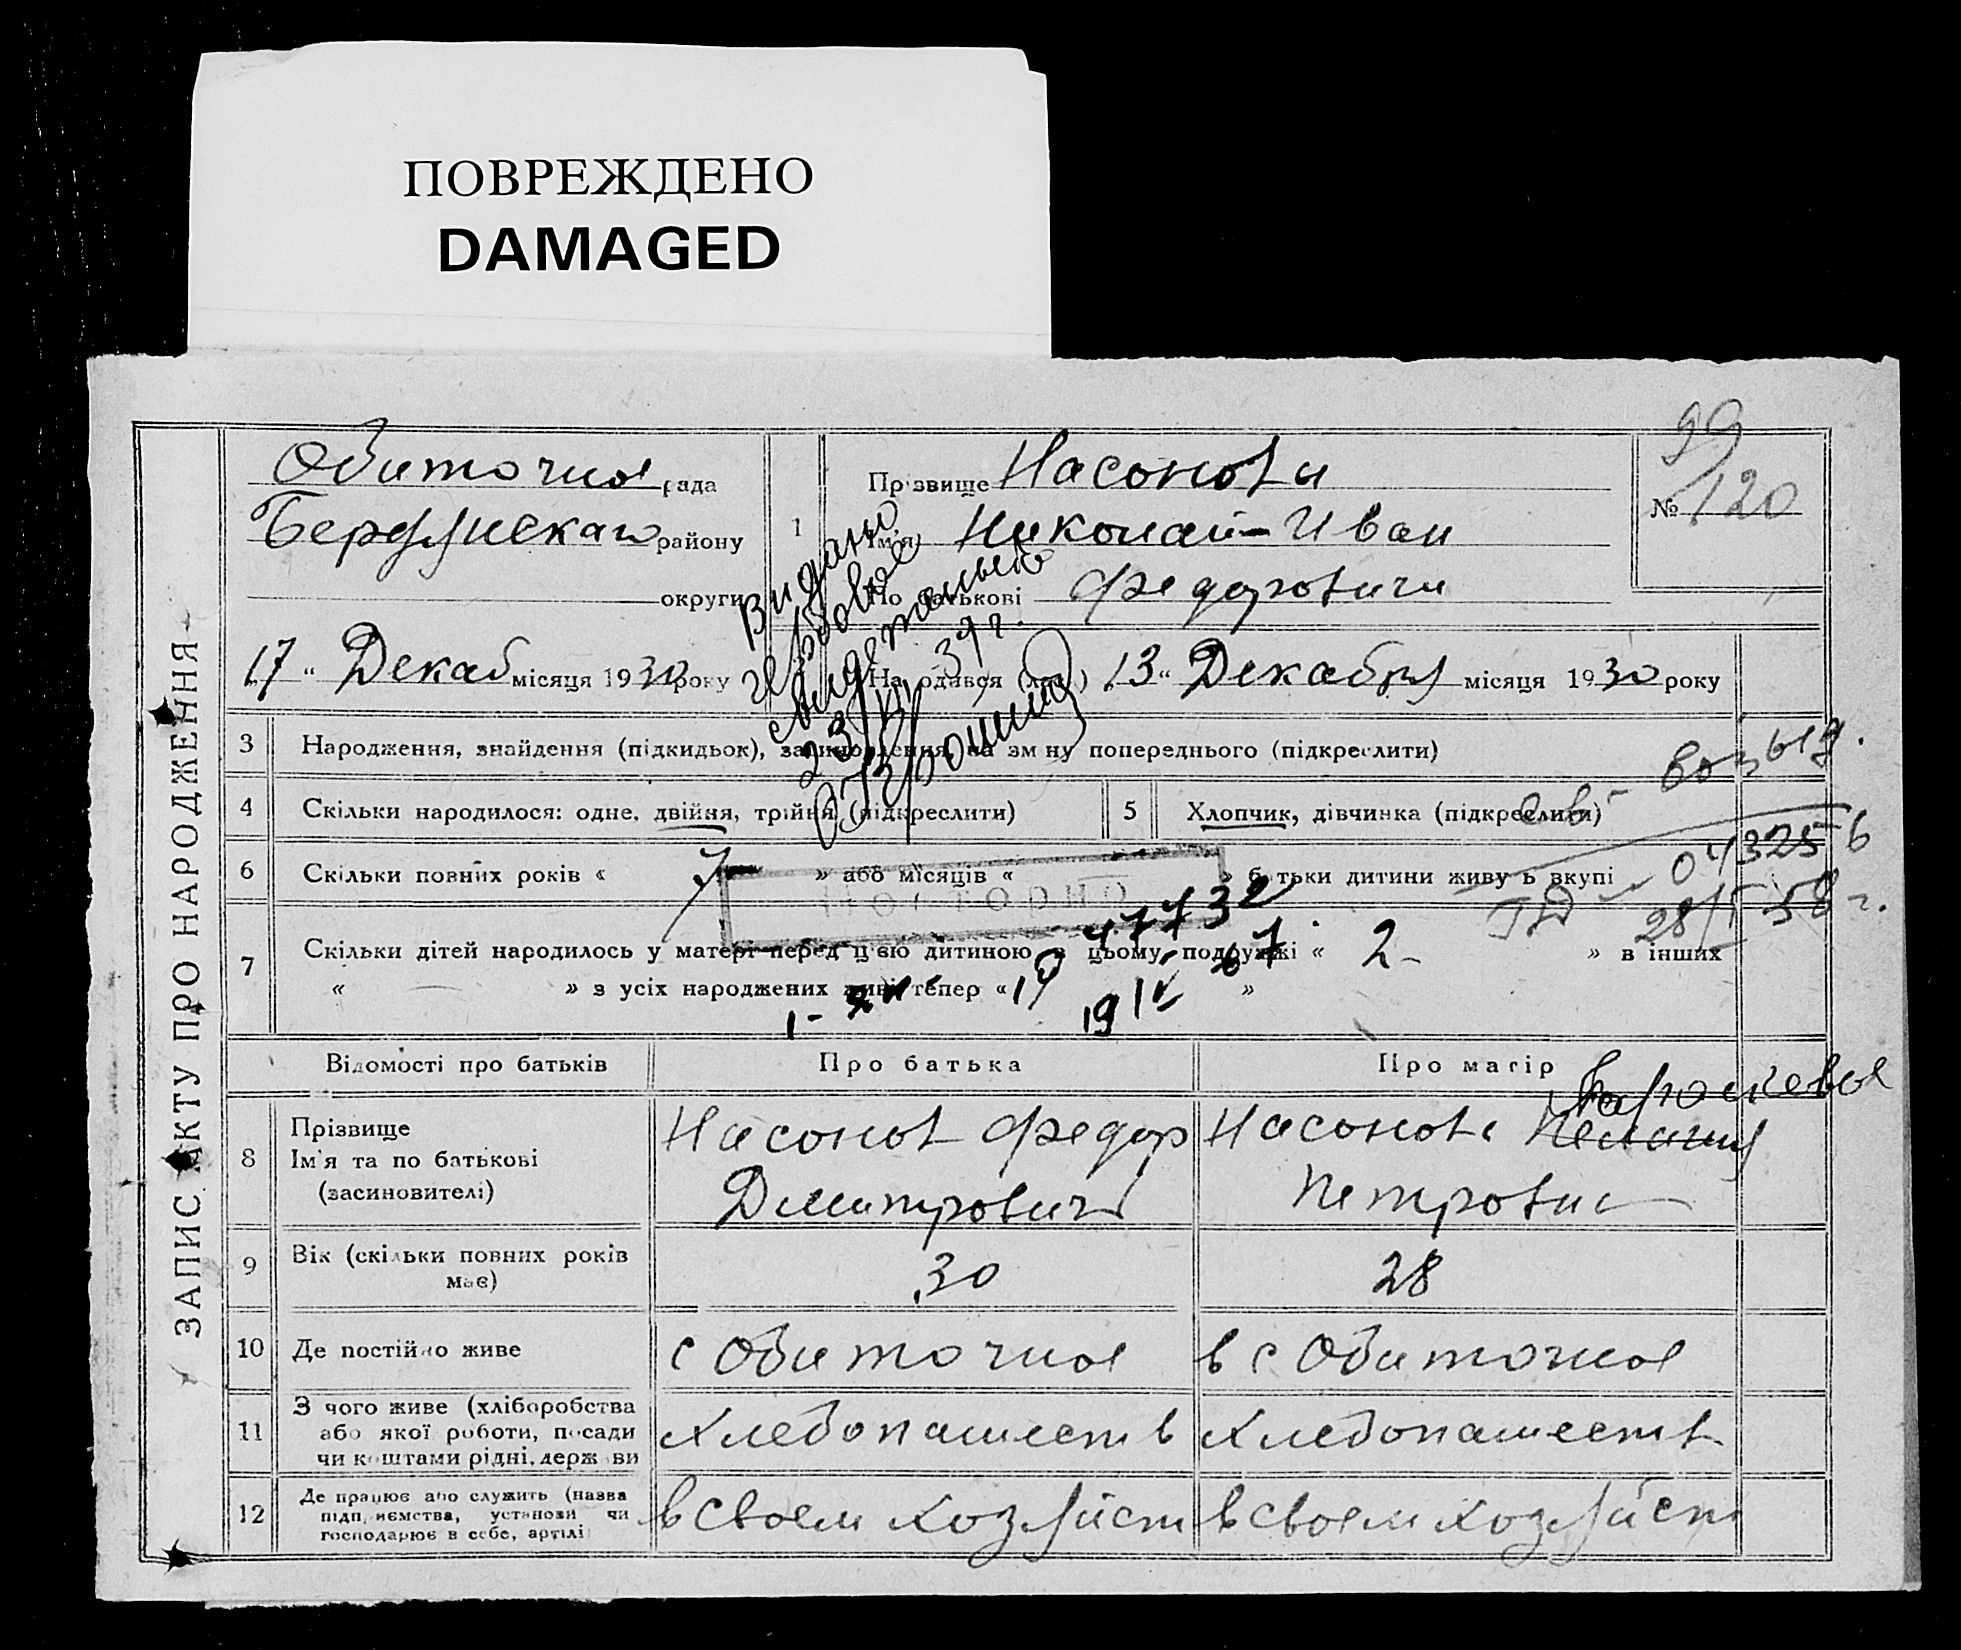 ПОВРЕЖДЕНО
DAMAGED
ЗАПИС АКТУ ПРО НАРОДЖЕННЯ
Обиточная рада
Бердянскаго району
округи
17 " Декаб місяця 1930 року
1
Прізвище Насоновы
Ім'я Николай-Иван
По батькові Федоровичи
99
№ 120
Народився (лась) 13 " Декабря місяця 1930 року
Видано
гербовое
свидетельство
23/VI 39 г.
3 Народження, знайдення (підкидьок), засиновлення, на зміну попереднього (підкреслити)
4 Скільки народилося: одне, двійня, трійня (підкреслити)
5 Хлопчик, дівчинка (підкреслити)
6 Скільки повних років « 7 » або місяців « » батьки дитини живуть вкупі
св-
043256
28/I 58 г.
ПОВТОРНО
47732
7 Скільки дітей народилось у матері перед цією дитиною в цьому подружжі « 2 » в інших
« — » з усіх народжених живі тепер « »
19 IV 67
Відомості про батьків
Про батька
Про матір
8 Прізвище
Ім'я та по батькові
(засиновителі)
Насонов Федор
Дмитрович
Насонова Пелагия
Петровна
9 Вік (скільки повних років
має)
30
28
10 Де постійно живе
с Обиточная
в с Обиточная
11 З чого живе (хліборобства
або якої роботи, посади
чи коштами рідні, держави
хлебопашеств
хлебопашеств
12 Де працює або служить (назва
підприємства, установи чи
господарює в себе, артілі
в своем хозяйст
в своем хозяйст